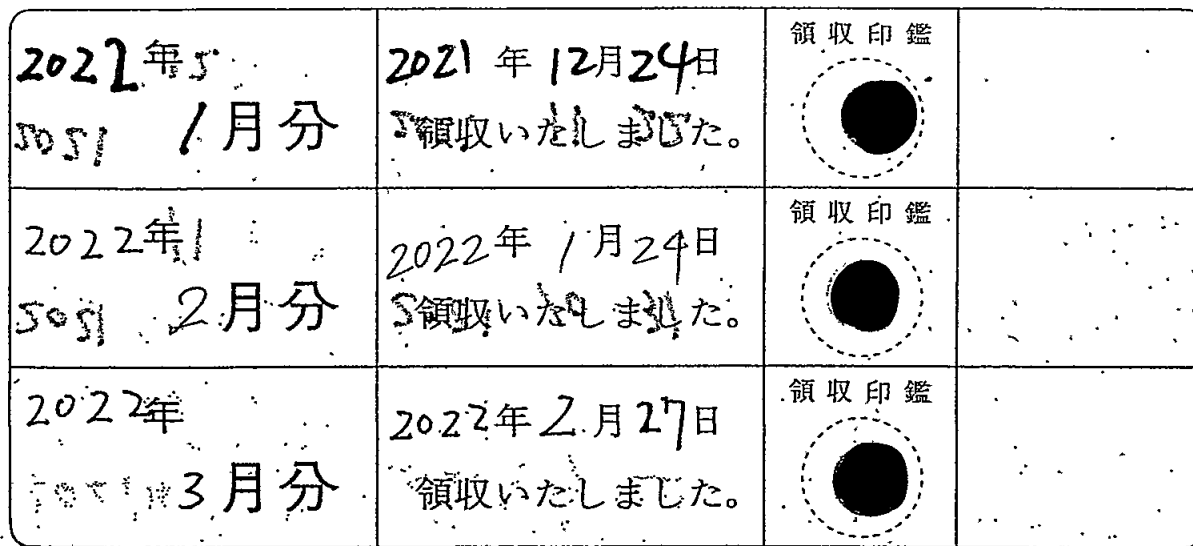 2022年
1月分
2021年12月24日
領収いたしました。
領収印鑑
2022年
2月分
2022年1月24日
領収いたしました。
領収印鑑
2022年
3月分
2022年2月27日
領収いたしました。
領収印鑑